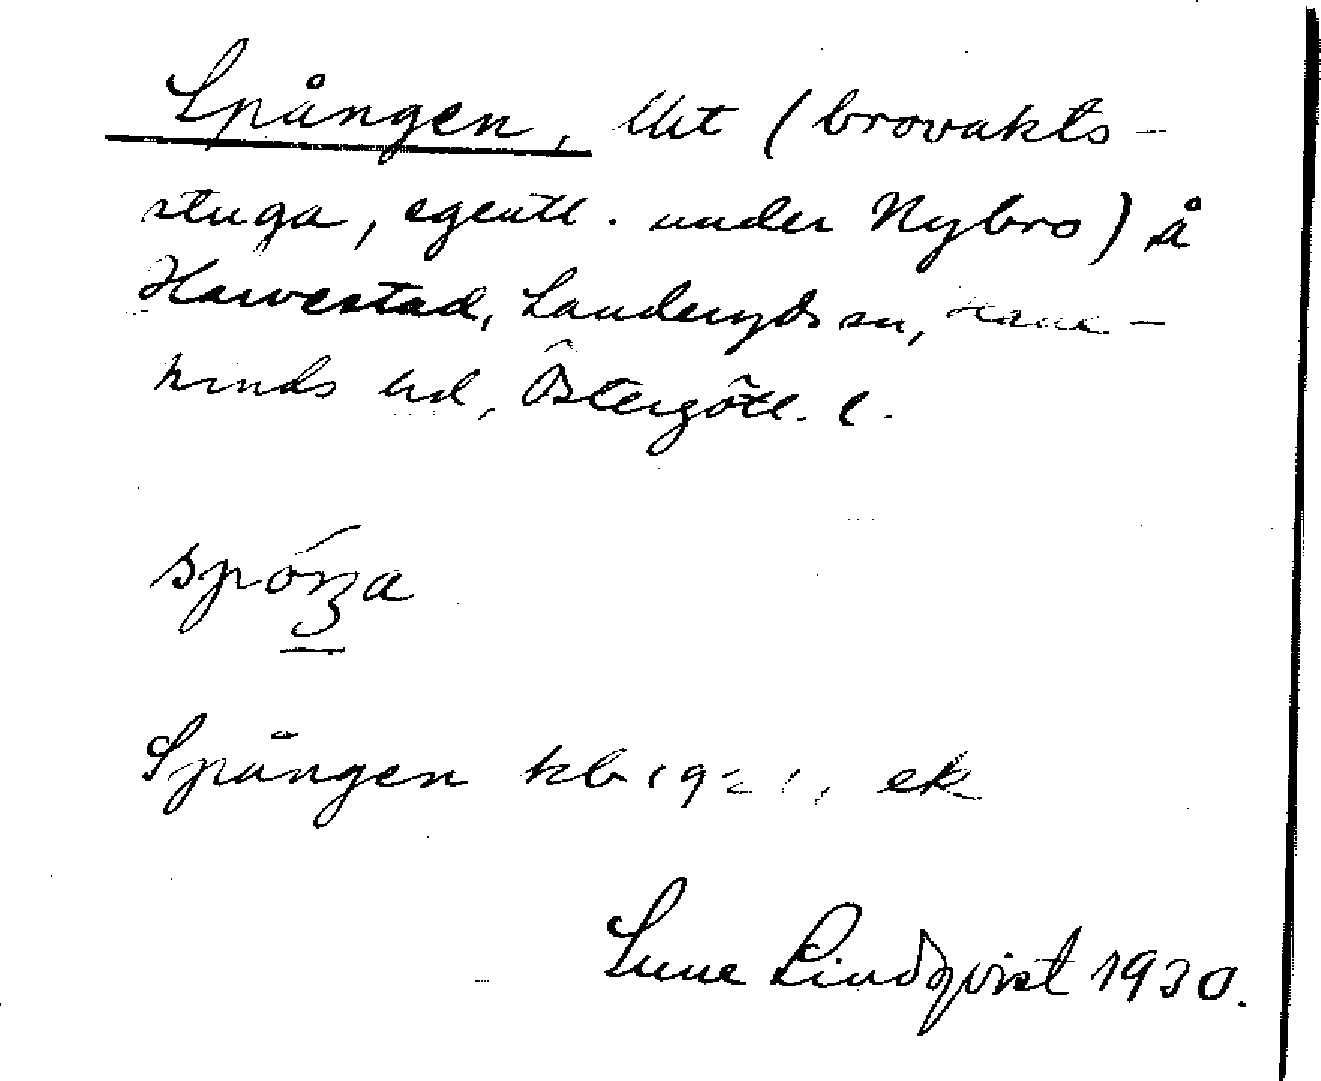 Spången, lht (brovakts-
stuga, egentl. under Nybro) å
Harvestad, Landeryds sn, Hane-
kinds hd, Östergötl. l.
Spången kb 1921, ek
Sune Lindqvist 1930.